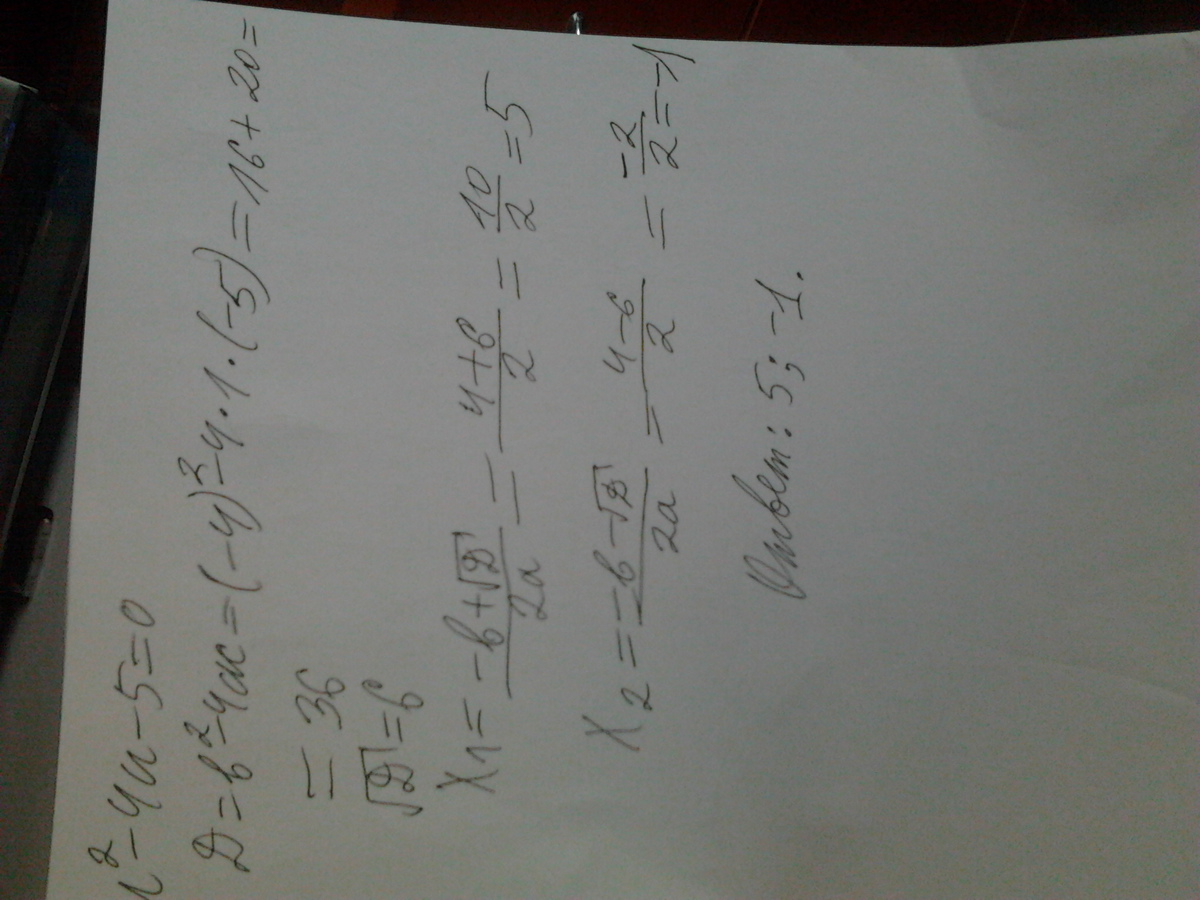 u² - 4u - 5 = 0
D = b² - 4ac = (-4)² - 4 · 1 · (-5) = 16 + 20 =
= 36
√D = 6
x1 = (-b + √D)/2a = (4 + 6)/2 = 10/2 = 5
x2 = (-b - √D)/2a = (4 - 6)/2 = -2/2 = -1
Ответ: 5; -1.